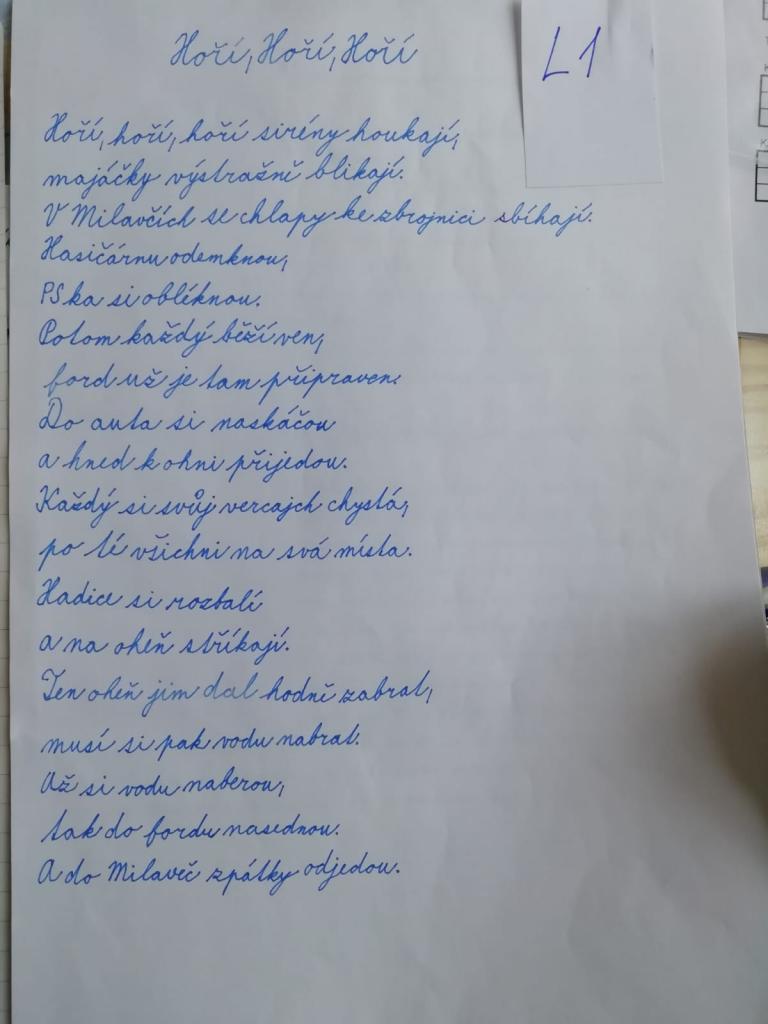 Hoří, Hoří, Hoří
L1
Hoří, hoří, hoří sirény houkají,
majáčky výstražně blikají.
V Milavčích se chlapy ke zbrojnici sbíhají.
Hasičárnu odemknou,
PSka si obléknou.
Potom každý běží ven,
ford už je tam připraven.
Do auta si naskáčou
a hned k ohni přijedou.
Každý si svůj vercajch chystá,
po té všichni na svá místa.
Hadice si rozbalí
a na oheň stříkají.
Ten oheň jim dal hodně zabrat,
musí si pak vodu nabrat.
Už si vodu naberou,
tak do fordu nasednou.
A do Milavěč zpátky odjedou.